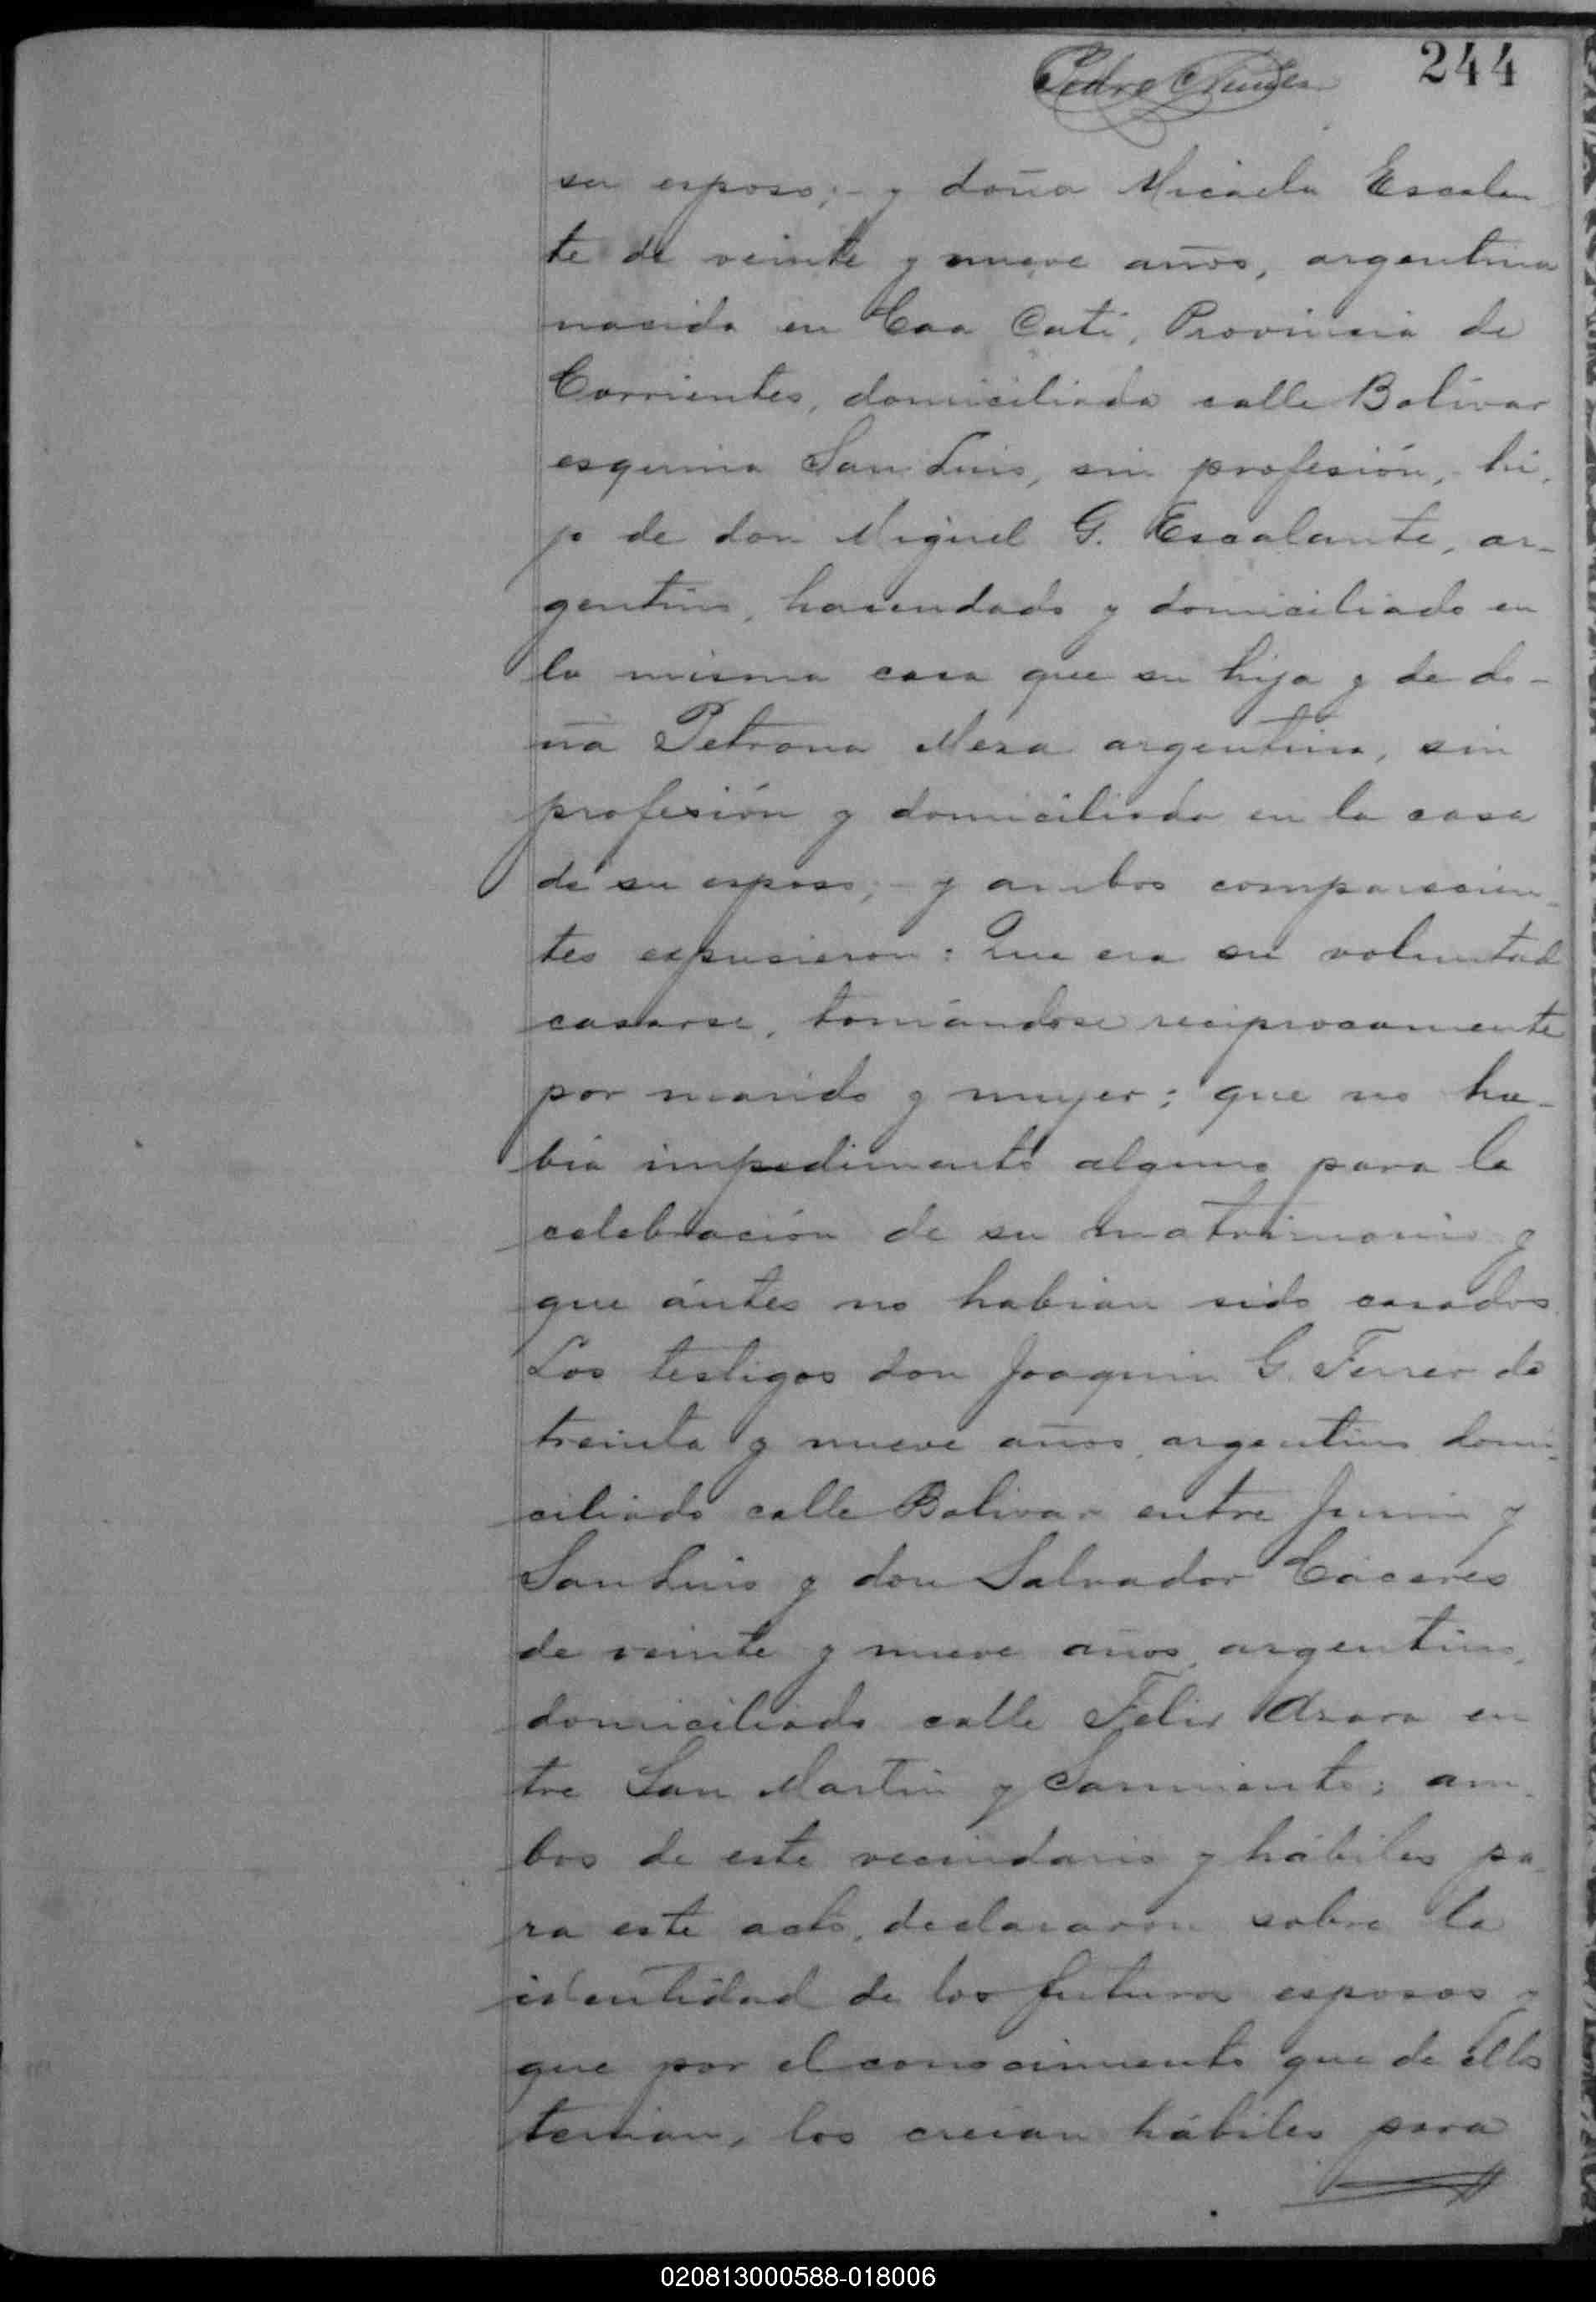 244
Pedro Nuñez
su esposo; - y doña Micaela Escalan
te de veinte y nueve años, argentina
nacida en Caa Catí, Provincia de
Corrientes, domiciliada calle Bolívar
esquina San Luis, sin profesión, hi,
ja de don Miguel G. Escalante, ar-
gentino, hacendado y domiciliado en
la misma casa que su hija y de do-
ña Petrona Meza argentina, sin
profesión y domiciliada en la casa
de su esposo; - y ambos comparecien-
tes expusieron: Que era su voluntad
casarse, tomándose reciprocamente
por marido y mujer; que no ha-
bía impedimento alguno para la
celebración de su matrimonio y
que ántes no habían sido casados
Los testigos don Joaquin G. Ferrer de
treinta y nueve años, argentino domi-
ciliado calle Bolivar entre Junin y
San Luis y don Salvador Cáceres
de veinte y nueve años, argentino,
domiciliado calle Felix Azara en
tre San Martin y Sarmiento; am-
bos de este vecindario y hábiles pa-
ra este acto, declararon sobre la
identidad de los futuros esposos y
que por el conocimiento que de ellos
tenían, los creían hábiles para
020813000588-018006